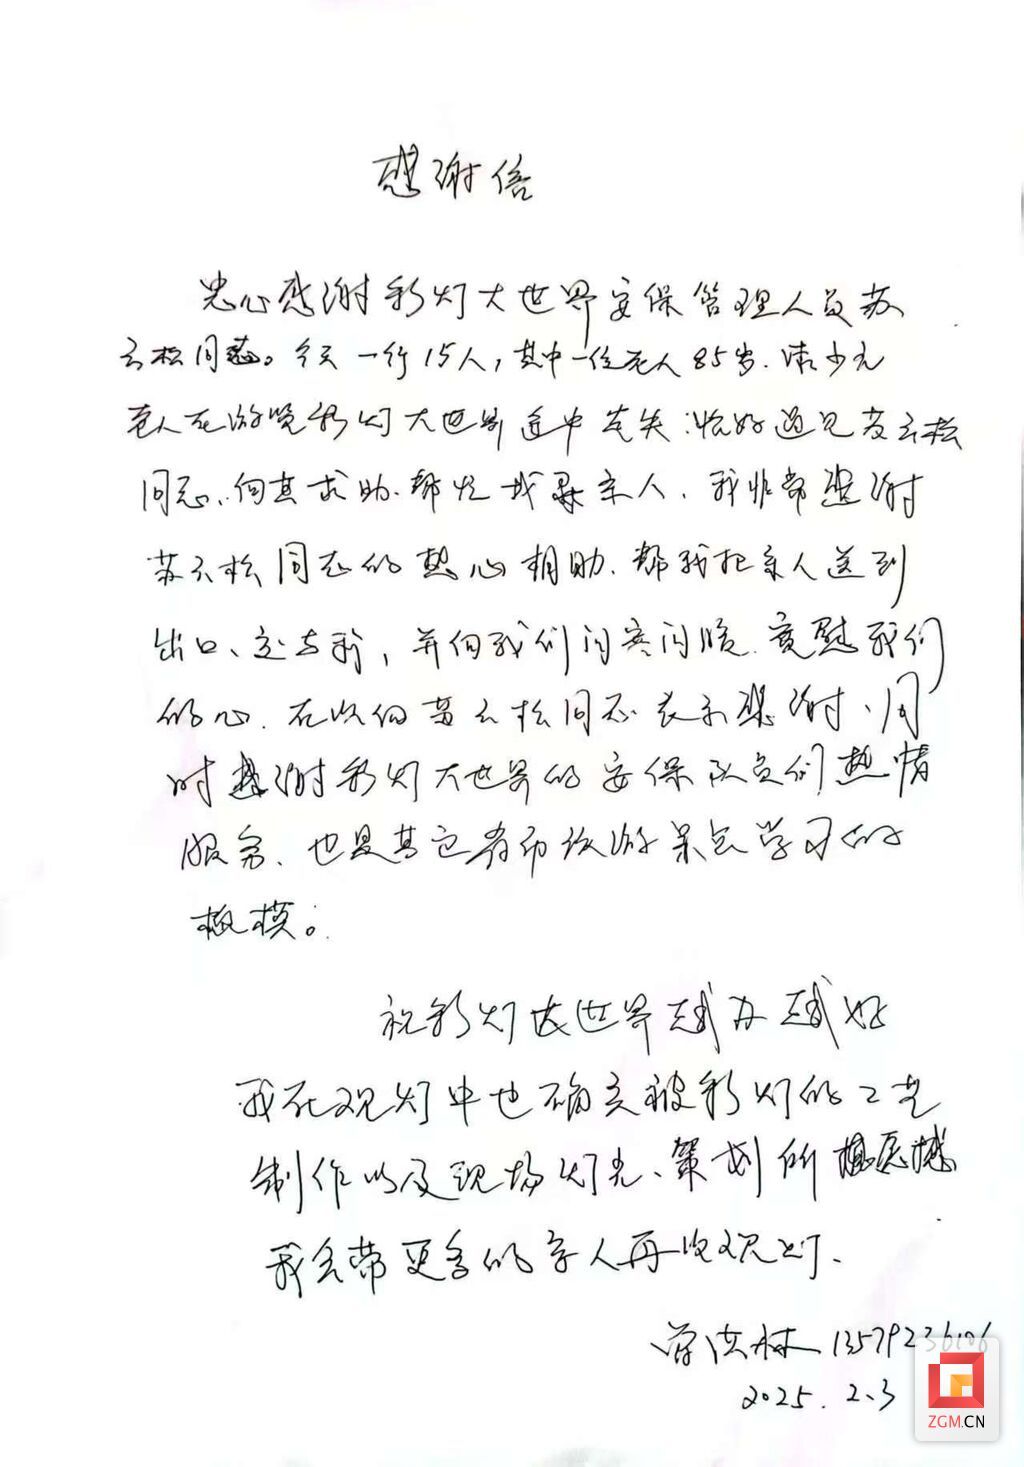 感谢信
忠心感谢彩灯大世界安保管理人员苏
云松同志。今天一行15人，其中一位老人85岁.
老人在游览彩灯大世界途中走失.恰好遇见苏云松
同志、向其求助.帮忙找寻亲人.我非常感谢
苏云松同志的热心相助.帮我把亲人送到
出口、并向我们问寒问暖.宽慰我们
的心.在次向苏云松同志表示感谢、同
时感谢彩灯大世界的安保队员们热情
服务、也是其它旅游景点学习的
楷模。
祝彩灯大世界越办越好
我在观灯中也确实被彩灯的工艺
制作以及现场灯光、策划所震撼
我会带更多的家人再次观灯.
曾洪林 13579236106
2025.2.3
ZGM.CN